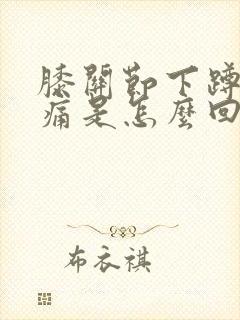 膝關節下蹲
痛是怎麼回
布衣褀